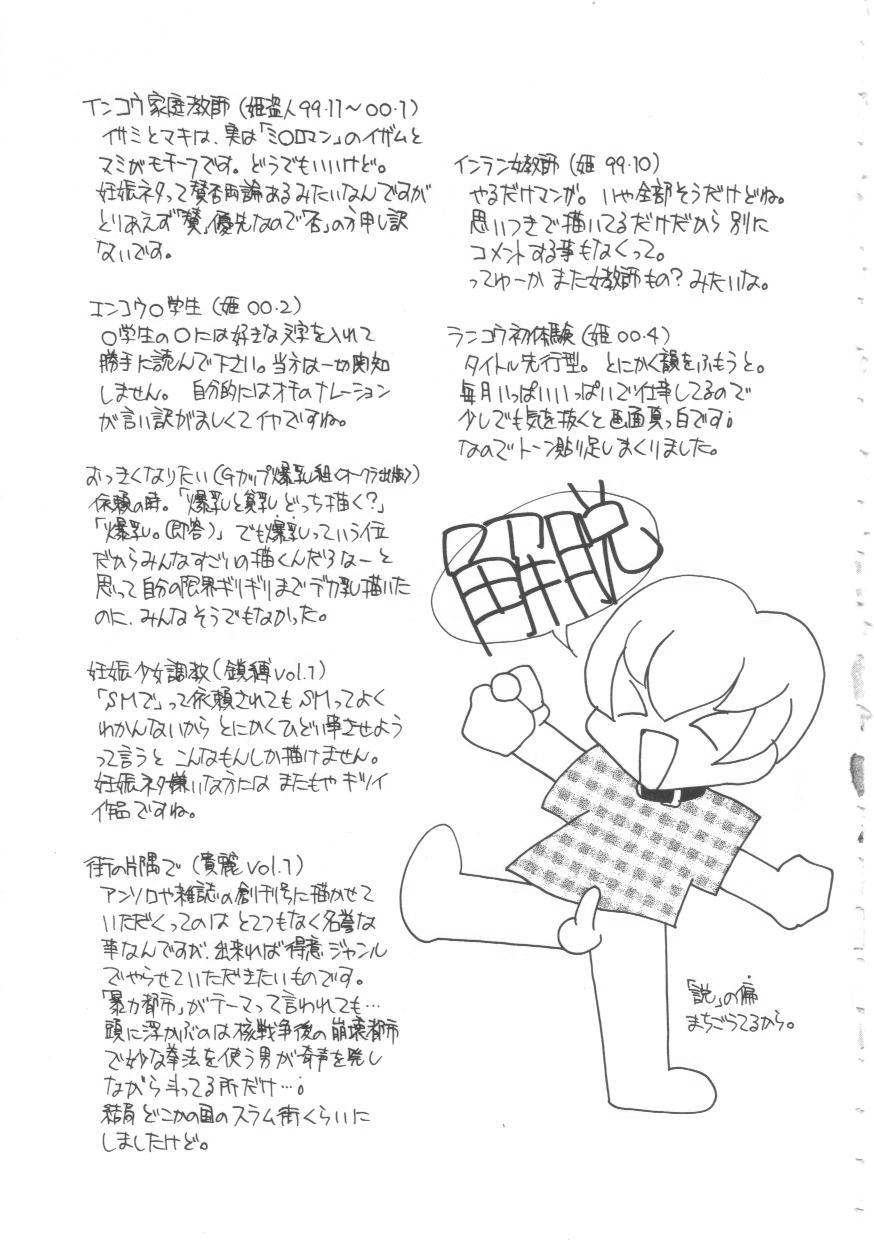 インコウ家庭教師(姫盗人99.11〜00.1)
イサミとマキは、実は「ミ○ロマン」のイザムと
マミがモチーフです。どうでもいいけど。
妊娠ネタって賛否両論あるみたいなんですが
とりあえず「賛」優先なので「否」の方申し訳
ないです。
エンコウ○学生(姫00.2)
○学生の○には好きな文字を入れて
勝手に読んで下さい。当方は一切関知
しません。自分的にはオチのナレーション
が言い訳がましくてイヤですね。
おっきくなりたい(Gカップ爆乳組<オークラ出版>)
依頼の時。「爆乳と貧乳どっち描く?」
「爆乳。(即答)」でも爆乳っていう位
だからみんなすごいの描くんだろなーと
思って自分の限界ギリギリまでデカ乳描いた
のに、みんなそうでもなかった。
妊娠少女調教(鎖縛vol.1)
「SMで」って依頼されてもSMってよく
わかんないからとにかくひどい事させよう
って言うとこんなもんしか描けません。
妊娠ネタ嫌いな方にはまたもやキツイ
作品ですね。
街の片隅で(貴麗vol.1)
アンソロや雑誌の創刊号に描かせて
いただくってのはとてつもなく名誉な
事なんですが、出来れば得意ジャンル
でやらせていただきたいものです。
「暴力都市」がテーマって言われても…
頭に浮かぶのは核戦争後の崩壊都市
で妙な拳法を使う男が奇声を発し
ながら斗ってる所だけ…;
結局どこかの国のスラム街くらいに
しましたけど。
インラン女教師(姫99.10)
やるだけマンガ。いや全部そうだけどね。
思いつきで描いてるだけだから別に
コメントする事もなくって。
ってゆーかまた女教師もの?みたいな。
ランコウ初体験(姫00.4)
タイトル先行型。とにかく韻をふもうと。
毎月いっぱいいっぱいで仕事してるので
少しでも気を抜くと画面真っ白です;
なのでトーン貼り足しまくりました。
「説」の偏
まちごうてるから。